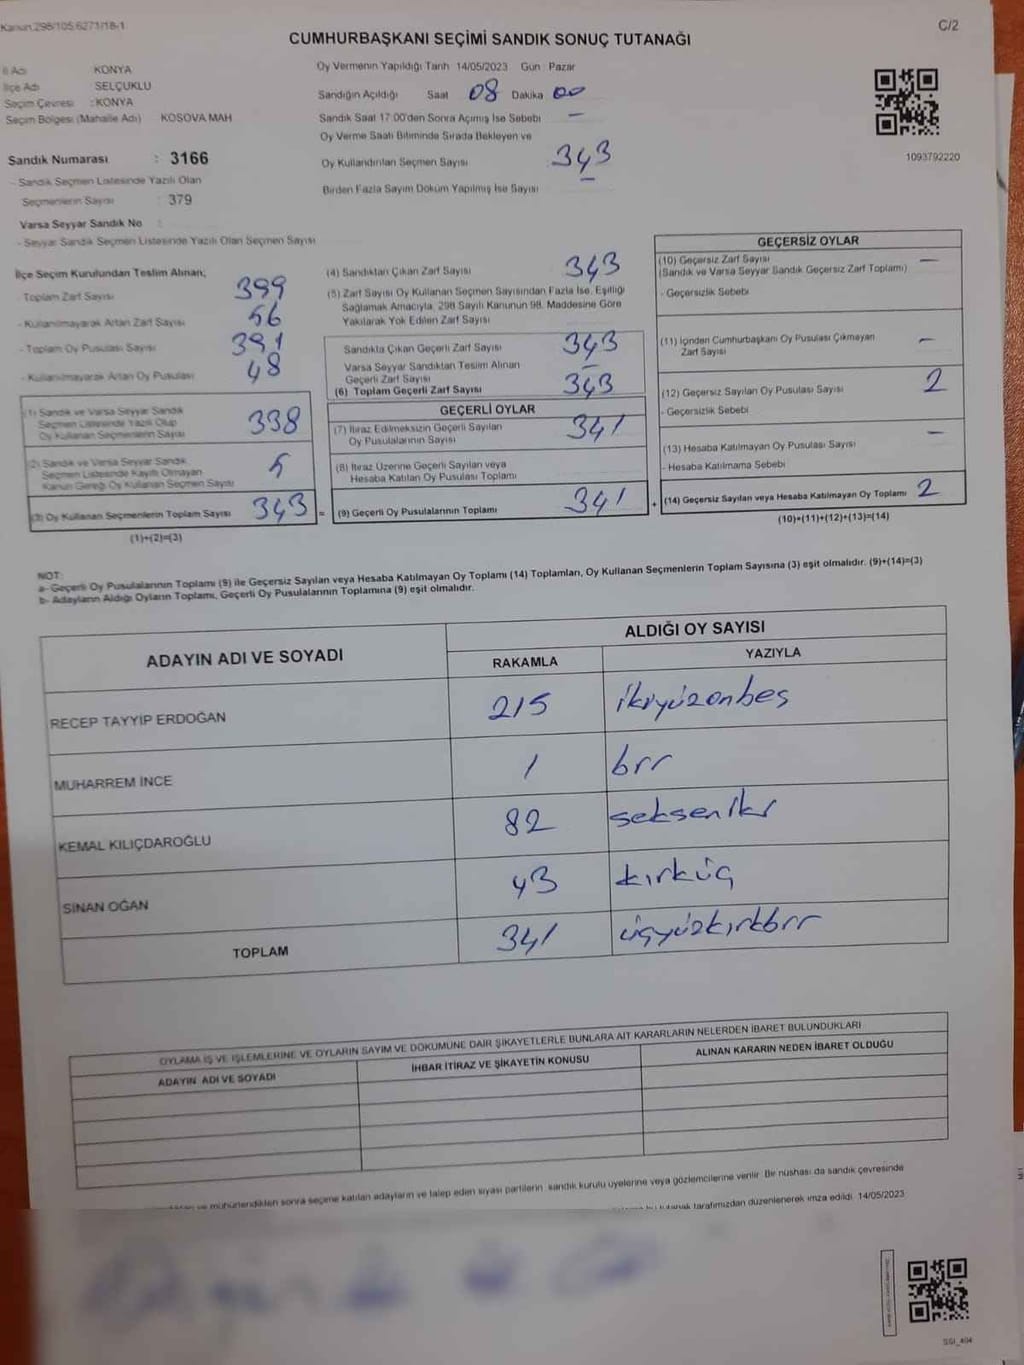 Kanun:298/105,6271/18-1
C/2
CUMHURBAŞKANI SEÇİMİ SANDIK SONUÇ TUTANAĞI
İl Adı KONYA
İlçe Adı SELÇUKLU
Seçim Çevresi : KONYA
Seçim Bölgesi (Mahalle Adı) KOSOVA MAH
Sandık Numarası : 3166
- Sandık Seçmen Listesinde Yazılı Olan
Seçmenlerin Sayısı : 379
Varsa Seyyar Sandık No :
- Seyyar Sandık Seçmen Listesinde Yazılı Olan Seçmen Sayısı
Oy Vermenin Yapıldığı Tarih 14/05/2023 Gün Pazar
Sandığın Açıldığı Saat 08 Dakika 00
Sandık Saat 17:00'den Sonra Açımış İse Sebebi —
Oy Verme Saati Bitiminde Sırada Bekleyen ve
Oy Kullandırılan Seçmen Sayısı : 343
Birden Fazla Sayım Döküm Yapılmış İse Sayısı —
1093792220
İlçe Seçim Kurulundan Teslim Alınan;
- Toplam Zarf Sayısı 399
- Kullanılmayarak Artan Zarf Sayısı 56
- Toplam Oy Pusulası Sayısı 391
- Kullanılmayarak Artan Oy Pusulası 48
(1) Sandık ve Varsa Seyyar Sandık
Seçmen Listesinde Yazılı Olup
Oy Kullanan Seçmenlerin Sayısı 338
(2) Sandık ve Varsa Seyyar Sandık
Seçmen Listesinde Kayıtlı Olmayan
Kanun Gereği Oy Kullanan Seçmen Sayısı 5
(3) Oy Kullanan Seçmenlerin Toplam Sayısı 343 =
(1)+(2)=(3)
(4) Sandıktan Çıkan Zarf Sayısı 343
(5) Zarf Sayısı Oy Kullanan Seçmen Sayısından Fazla İse, Eşitliği
Sağlamak Amacıyla, 298 Sayılı Kanunun 98. Maddesine Göre
Yakılarak Yok Edilen Zarf Sayısı —
Sandıkta Çıkan Geçerli Zarf Sayısı 343
Varsa Seyyar Sandıktan Teslim Alınan
Geçerli Zarf Sayısı —
(6) Toplam Geçerli Zarf Sayısı 343
GEÇERLİ OYLAR
(7) İtiraz Edilmeksizin Geçerli Sayılan
Oy Pusulalarının Sayısı 341
(8) İtiraz Üzerine Geçerli Sayılan veya
Hesaba Katılan Oy Pusulası Toplamı
(9) Geçerli Oy Pusulalarının Toplamı 341 +
GEÇERSİZ OYLAR
(10) Geçersiz Zarf Sayısı —
(Sandık ve Varsa Seyyar Sandık Geçersiz Zarf Toplamı)
- Geçersizlik Sebebi
(11) İçinden Cumhurbaşkanı Oy Pusulası Çıkmayan
Zarf Sayısı —
(12) Geçersiz Sayılan Oy Pusulası Sayısı 2
- Geçersizlik Sebebi
(13) Hesaba Katılmayan Oy Pusulası Sayısı —
- Hesaba Katılmama Sebebi
(14) Geçersiz Sayılan veya Hesaba Katılmayan Oy Toplamı 2
(10)+(11)+(12)+(13)=(14)
NOT:
a- Geçerli Oy Pusulalarının Toplamı (9) ile Geçersiz Sayılan veya Hesaba Katılmayan Oy Toplamı (14) Toplamları, Oy Kullanan Seçmenlerin Toplam Sayısına (3) eşit olmalıdır. (9)+(14)=(3)
b- Adayların Aldığı Oyların Toplamı, Geçerli Oy Pusulalarının Toplamına (9) eşit olmalıdır.
ADAYIN ADI VE SOYADI ALDIĞI OY SAYISI
RAKAMLA YAZIYLA
RECEP TAYYİP ERDOĞAN 215 ikiyüzonbeş
MUHARREM İNCE 1 bir
KEMAL KILIÇDAROĞLU 82 sekseniki
SİNAN OĞAN 43 kırküç
TOPLAM 341 üçyüzkırkbir
OYLAMA İŞ VE İŞLEMLERİNE VE OYLARIN SAYIM VE DÖKÜMÜNE DAİR ŞİKAYETLERLE BUNLARA AİT KARARLARIN NELERDEN İBARET BULUNDUKLARI
ADAYIN ADI VE SOYADI İHBAR İTİRAZ VE ŞİKAYETİN KONUSU ALINAN KARARIN NEDEN İBARET OLDUĞU
ve mühürlendikten sonra seçime katılan adayların ve talep eden siyasi partilerin sandık kurulu üyelerine veya gözlemcilerine verilir. Bir nüshası da sandık çevresinde
bu tutanak tarafımızdan düzenlenerek imza edildi. 14/05/2023
SGI_404